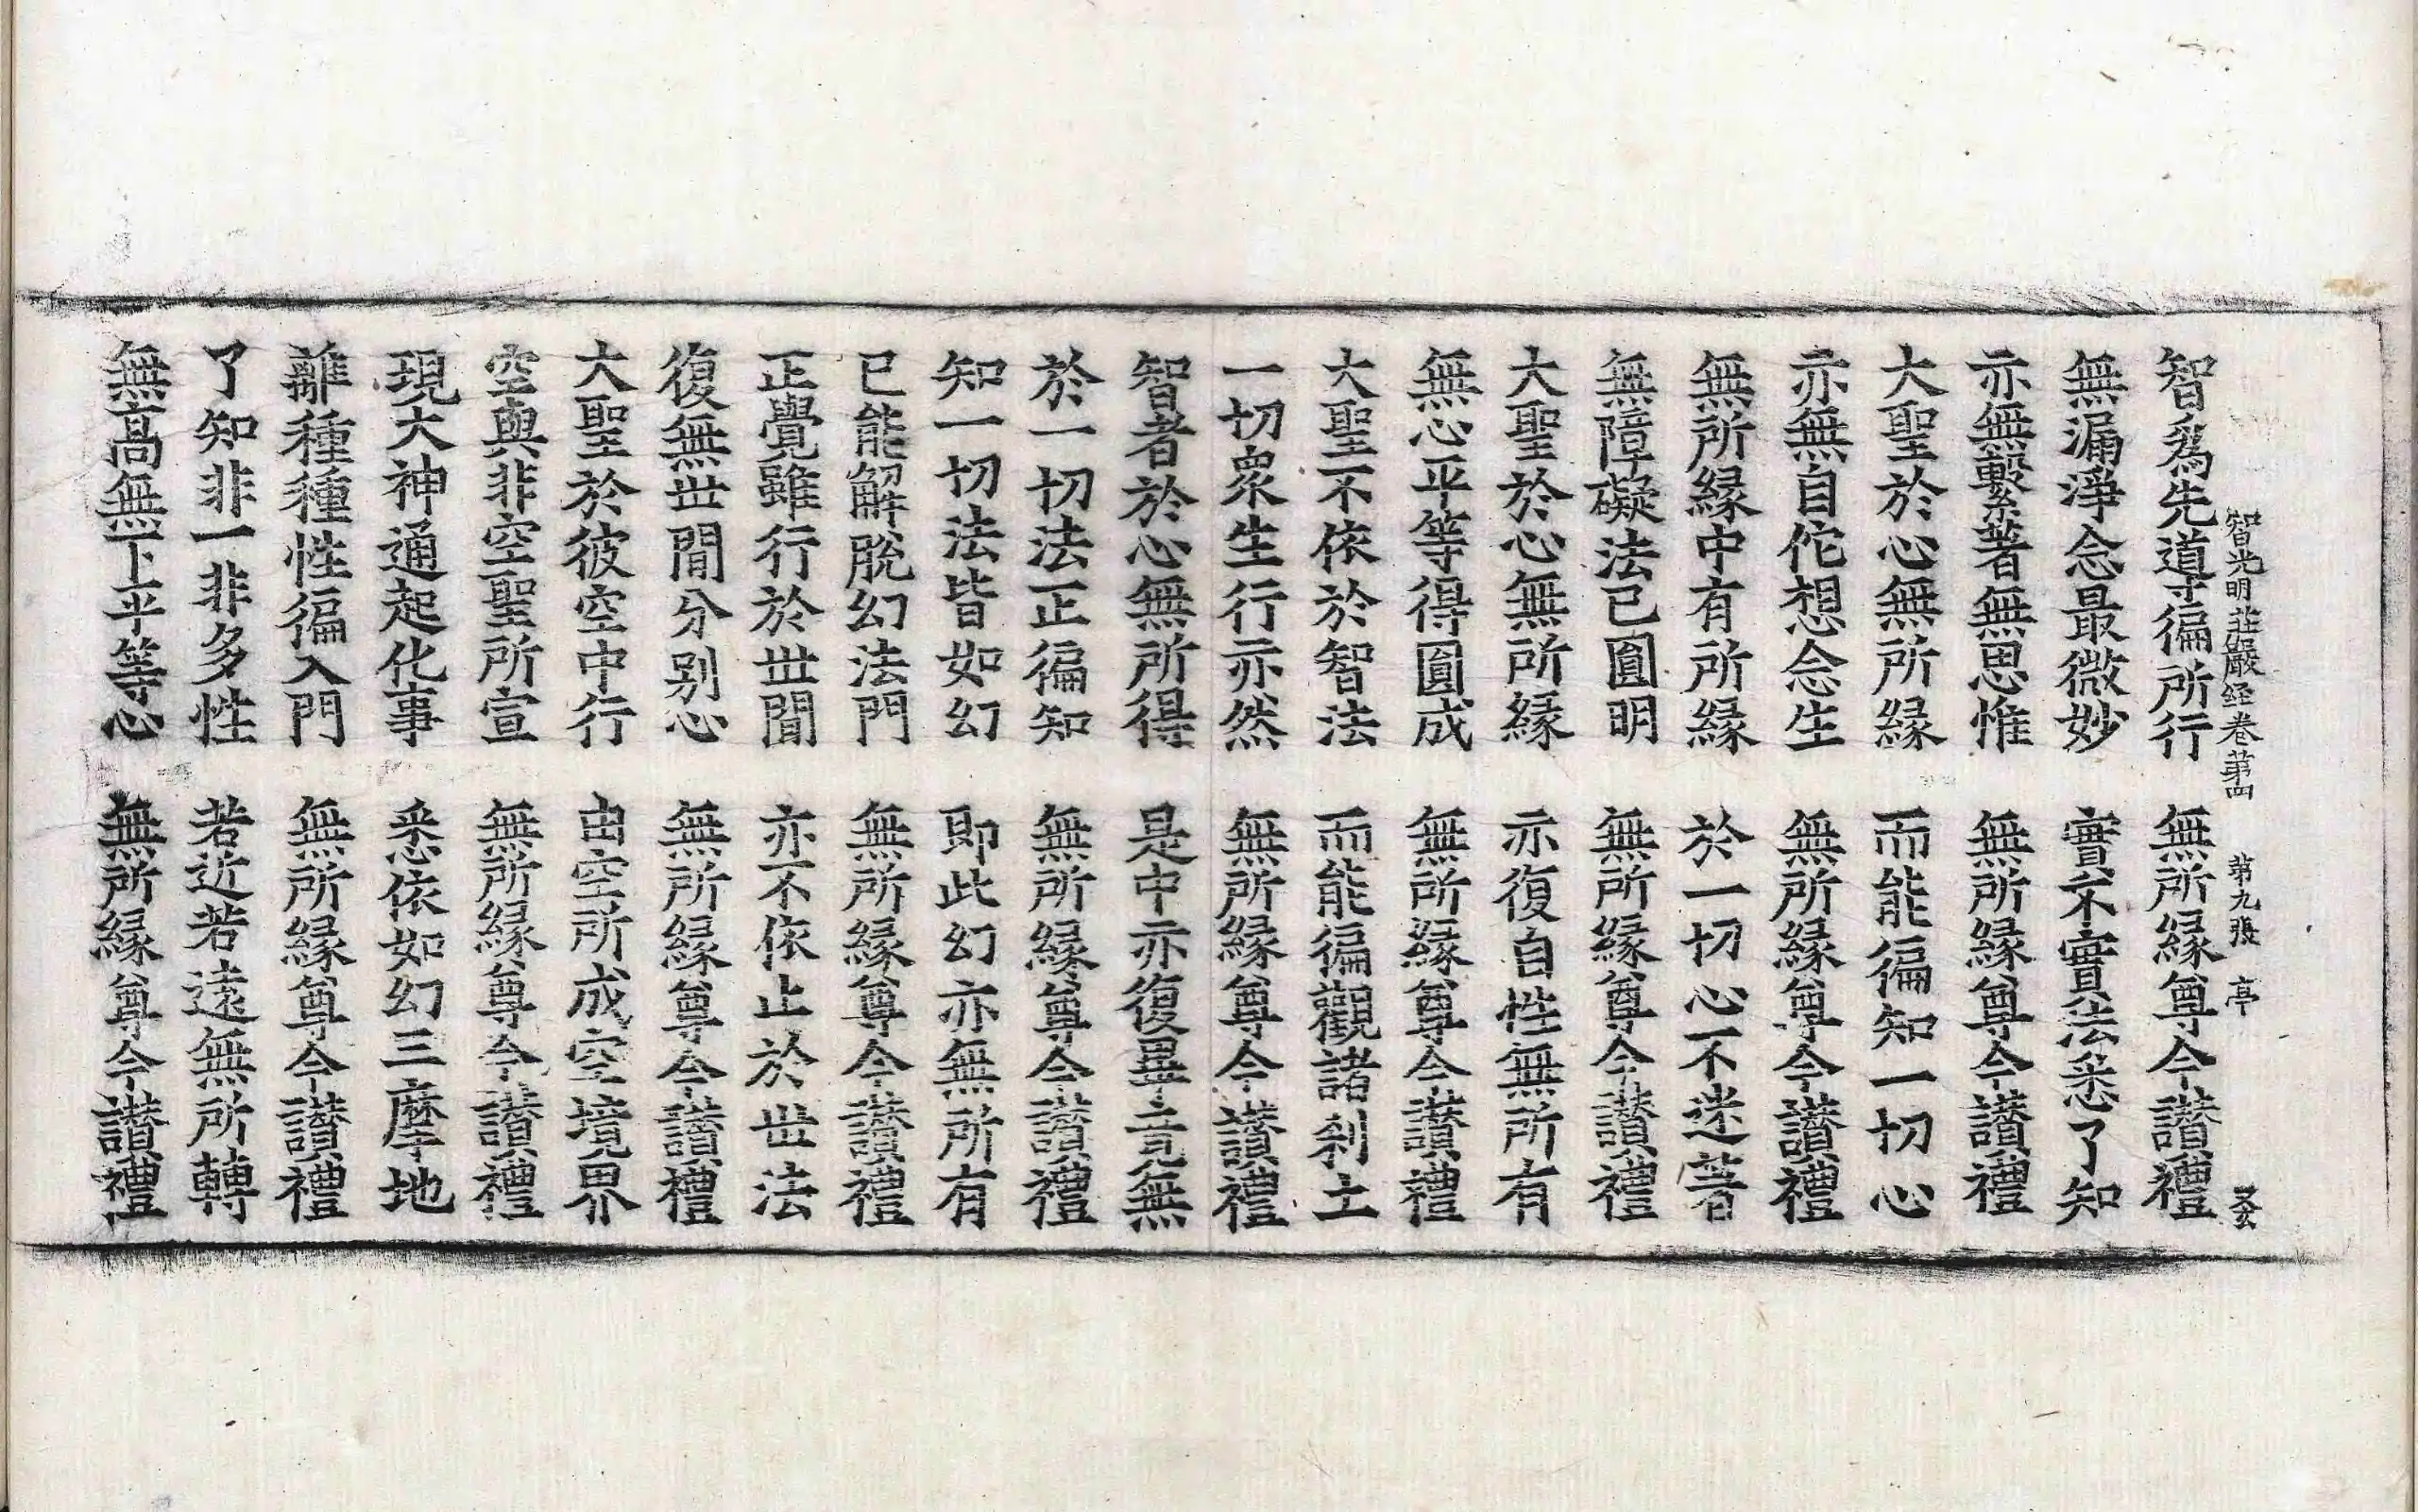 智光明莊嚴經卷第四 第九張 亭
智為先導徧所行 無所緣尊今讚禮
無漏淨念最微妙 實不實法悉了知
亦無繫著無思惟 無所緣尊今讚禮
大聖於心無所緣 而能徧知一切心
亦無自佗想念生 無所緣尊今讚禮
無所緣中有所緣 於一切心不迷著
無障礙法已圓明 無所緣尊今讚禮
大聖於心無所緣 亦復自性無所有
無心平等得圓成 無所緣尊今讚禮
大聖不依於智法 而能徧觀諸刹土
一切衆生行亦然 無所緣尊今讚禮
智者於心無所得 是中亦復畢竟無
於一切法正徧知 無所緣尊今讚禮
知一切法皆如幻 即此幻亦無所有
已能解脫幻法門 無所緣尊今讚禮
正覺雖行於世間 亦不依止於世法
復無世間分別心 無所緣尊今讚禮
大聖於彼空中行 由空所成空境界
空與非空聖所宣 無所緣尊今讚禮
現大神通起化事 悉依如幻三摩地
離種種性徧入門 無所緣尊今讚禮
了知非一非多性 若近若遠無所轉
無高無下平等心 無所緣尊今讚禮